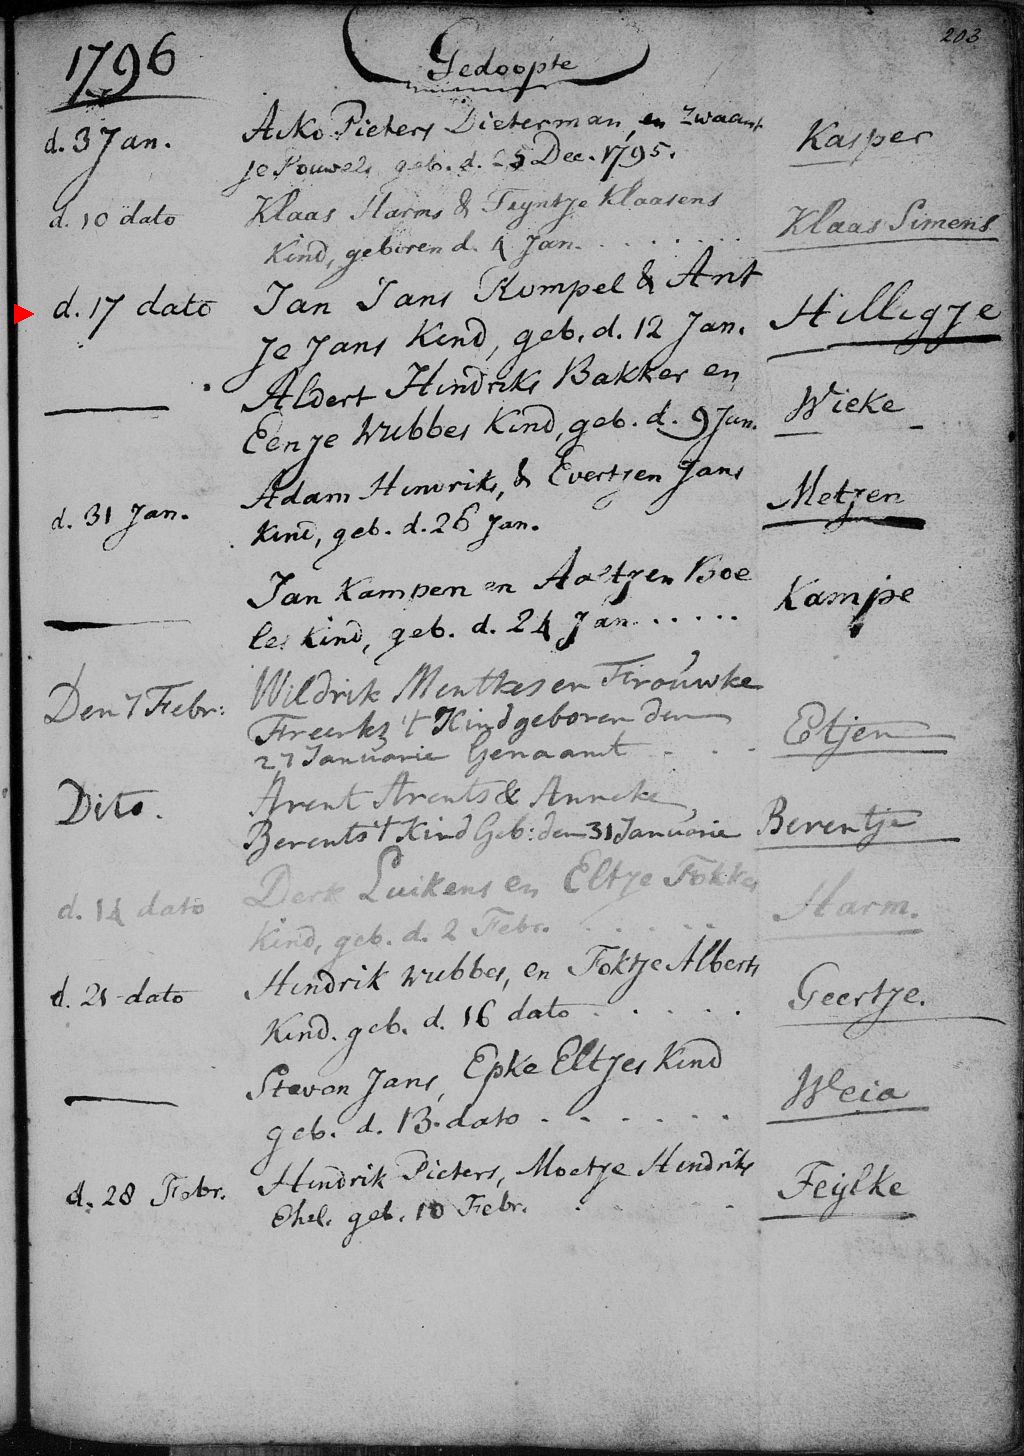 203
1796
Gedoopte
d. 3 Jan. Aiko Pieters Dieterman, en Zwaant
je Pouwels geb. d. 25 Dec. 1795. Kasper
d. 10 dato Klaas Harms & Trijntje Klaasens
Kind, geboren d. 4 Jan. . . . . . . Klaas Simens
d. 17 dato Jan Jans Kompel & Ant
je Jans Kind, geb. d. 12 Jan. Hilligje
Aldert Hindriks Bakker en
Eenje Wubbes Kind, geb. d. 9 Jan. Wieke
d. 31 Jan. Adam Hindriks, & Evertjen Jans
Kind, geb. d. 26 Jan. Metjen
Jan Kampen en Aaltjen Roe
les Kind, geb. d. 24 Jan . . . . . Kampe
Den 7 Febr: Wildrik Mentkes en Frouwke
Freerks 't Kind geboren den
27 Januarie Genaamt . . . Eltjen
Dito. Arent Arents & Anneke
Berents 't Kind Geb: den 31 Januarie Berentje
d. 14 dato Derk Luikens en Eltje Fokkes
Kind, geb. d. 2 Febr. . . . . . . Harm.
d. 21 dato Hindrik Wubbes, en Foktje Alberts
Kind. geb. d. 16 dato . . . . . Geertje.
Stevon Jans, Epke Eltjes Kind
geb. d. 13. dato . . . . . . Weia
d. 28 Febr. Hindrik Pieters, Moetje Hindriks
Ehel. geb. 10 Febr. . . Feijlke